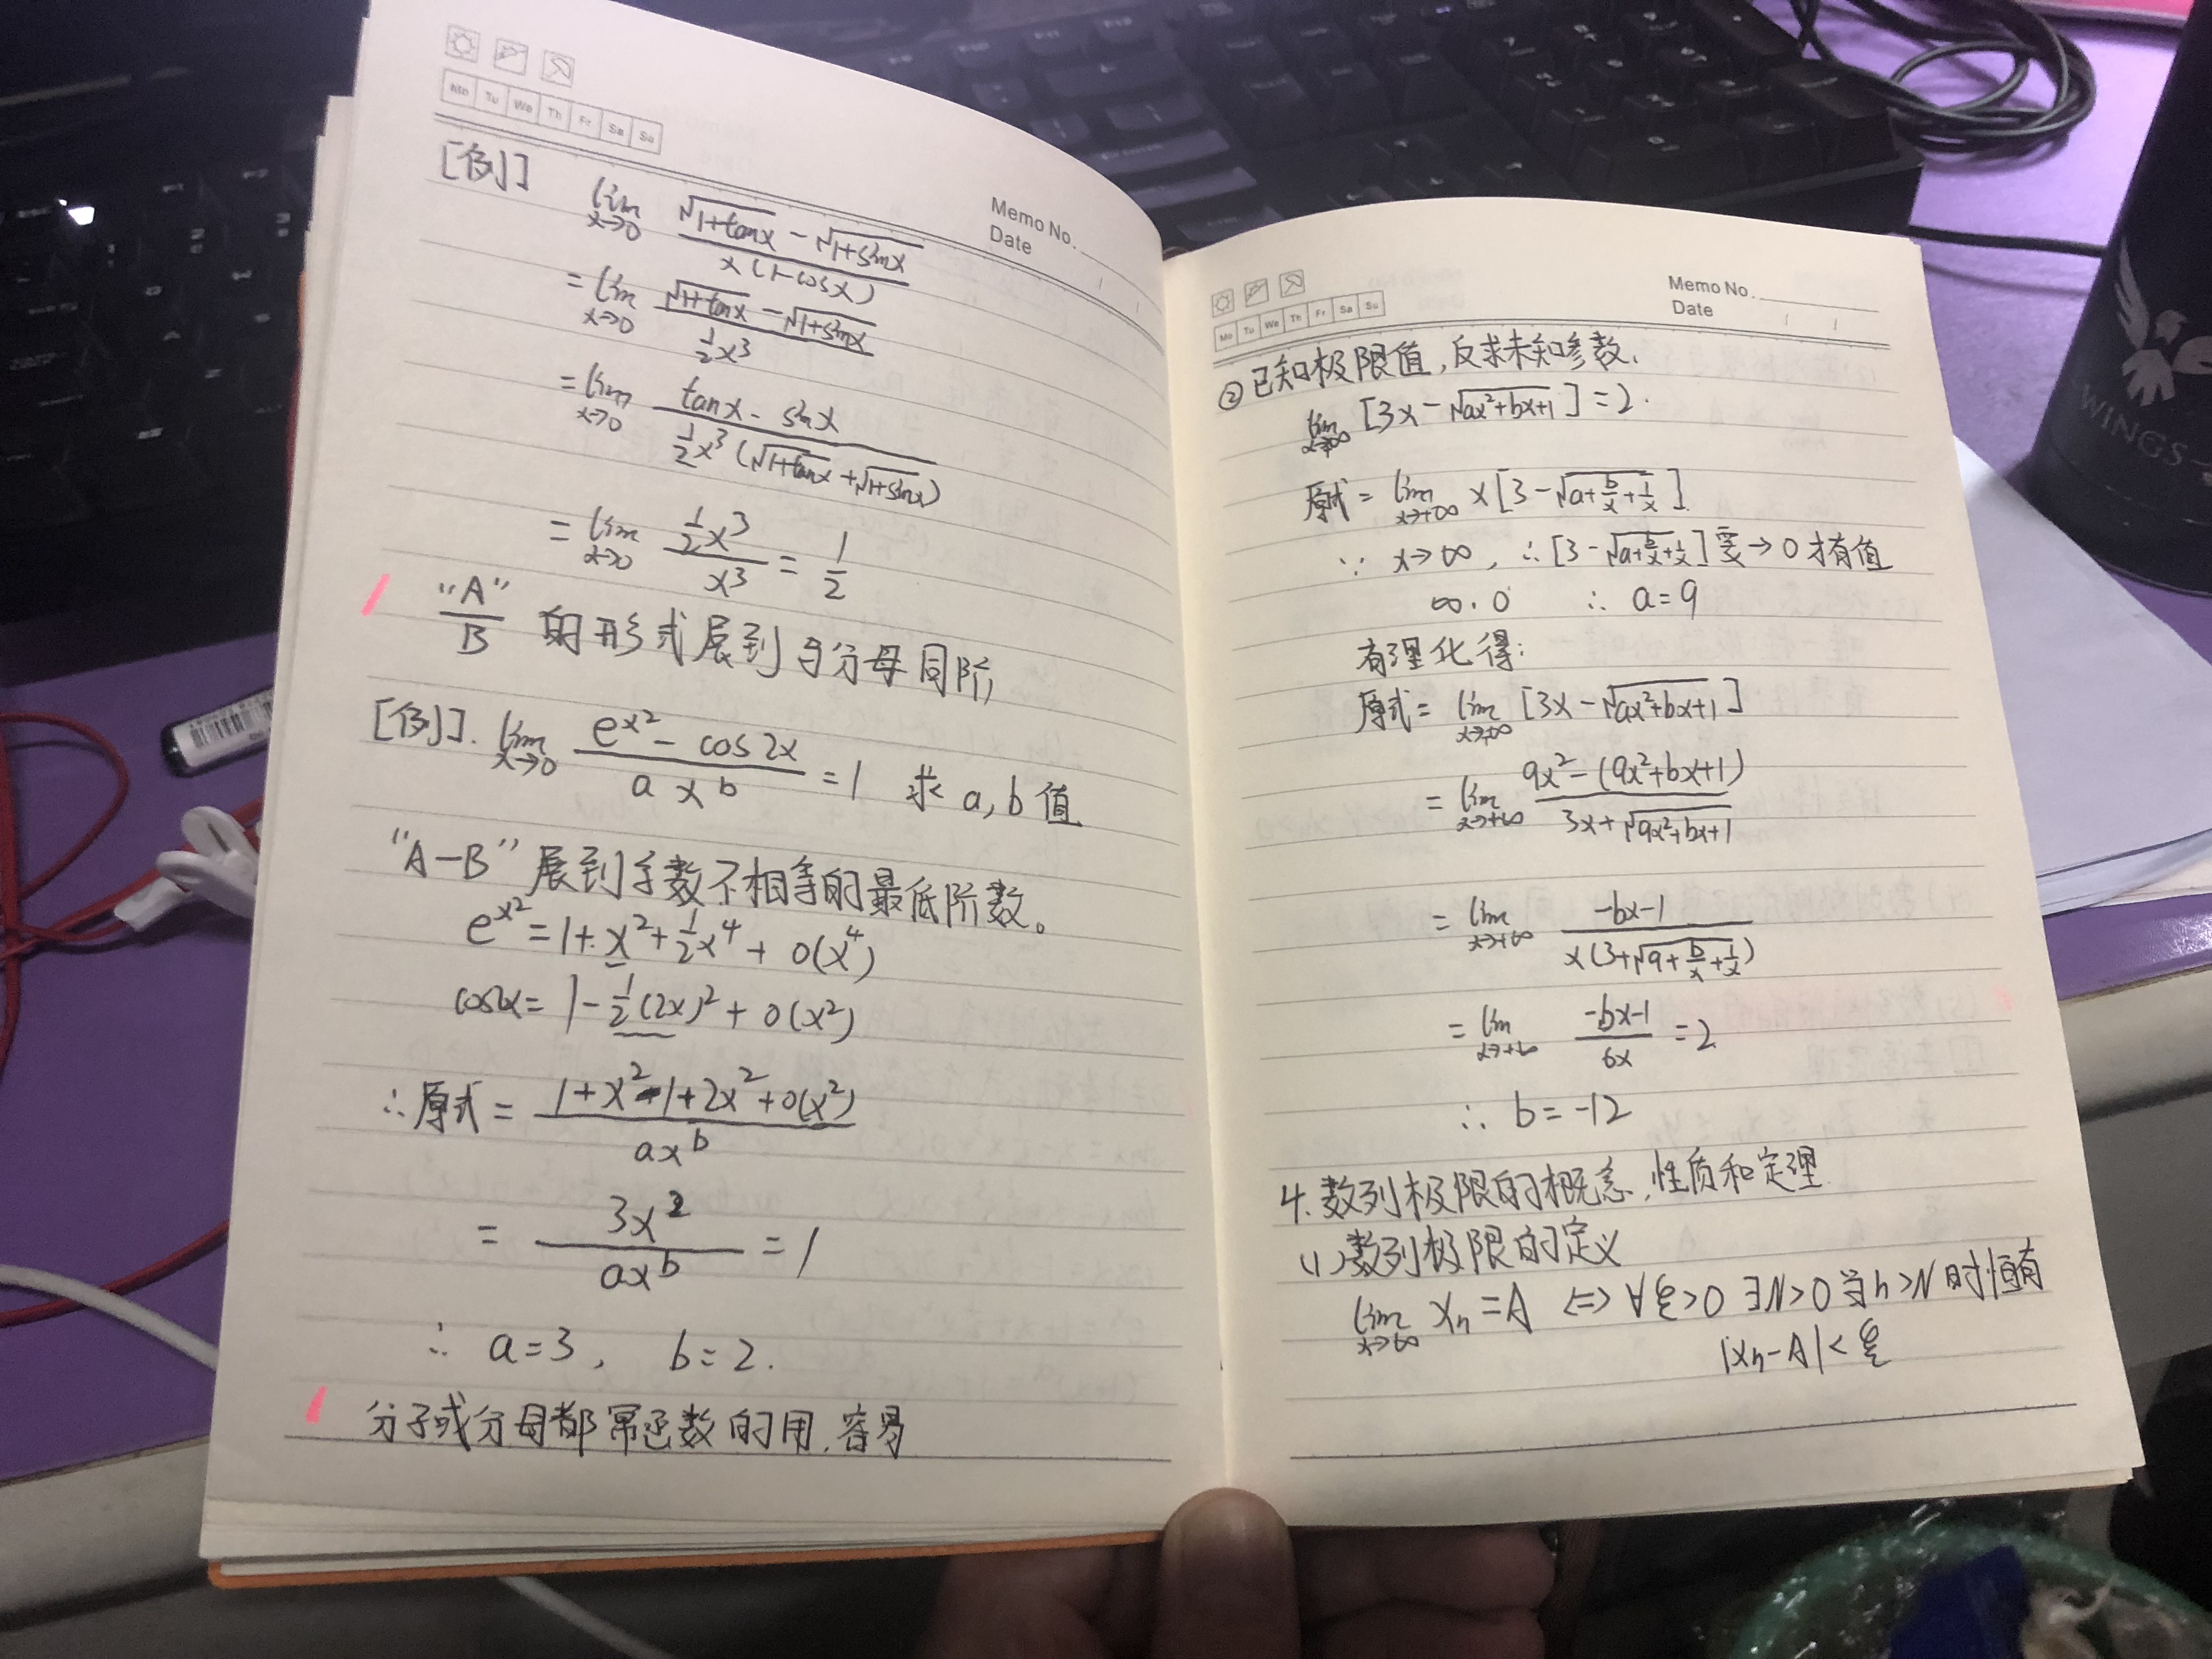 Mo Tu We Th Fr Sa Su
Memo No.
Date
[例]
lim x→0 (√(1+tanx) - √(1+sinx)) / (x(1-cosx))
= lim x→0 (√(1+tanx) - √(1+sinx)) / (½x³)
= lim x→0 (tanx - sinx) / (½x³(√(1+tanx) + √(1+sinx)))
= lim x→0 (½x³) / x³ = 1/2
"A"/B 的形式展到与分母同阶
[例]. lim x→0 (e^x² - cos2x) / (ax^b) = 1 求a,b值
"A-B"展到系数不相等的最低阶数。
e^x² = 1+x²+½x⁴+o(x⁴)
cos2x = 1-½(2x)²+o(x²)
∴原式 = (1+x²-1+2x²+o(x²)) / (ax^b)
= 3x² / (ax^b) = 1
∴ a=3, b=2.
分子或分母都幂函数的用,容易
Mo Tu We Th Fr Sa Su
Memo No.
Date
②已知极限值,反求未知参数.
lim x→+∞ [3x-√(ax²+bx+1)] = 2.
原式 = lim x→+∞ x[3-√(a+b/x+1/x)]
∵ x→∞, ∴[3-√(a+b/x+1/x)]要→0才有值
∞·0 ∴ a=9
有理化得:
原式 = lim x→+∞ [3x-√(ax²+bx+1)]
= lim x→+∞ (9x²-(9x²+bx+1)) / (3x+√(9x²+bx+1))
= lim x→+∞ (-bx-1) / (x(3+√(9+b/x+1/x)))
= lim x→+∞ (-bx-1) / 6x = 2
∴ b=-12
4.数列极限的概念,性质和定理
(1)数列极限的定义
lim x→∞ xn = A ⇔ ∀ξ>0 ∃N>0 当n>N时恒有
|xn-A|<ξ
WINGS